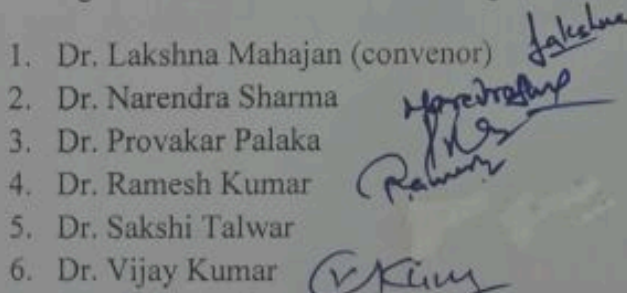 1. Dr. Lakshna Mahajan (convenor) Lakshna
2. Dr. Narendra Sharma
3. Dr. Provakar Palaka
4. Dr. Ramesh Kumar
5. Dr. Sakshi Talwar
6. Dr. Vijay Kumar